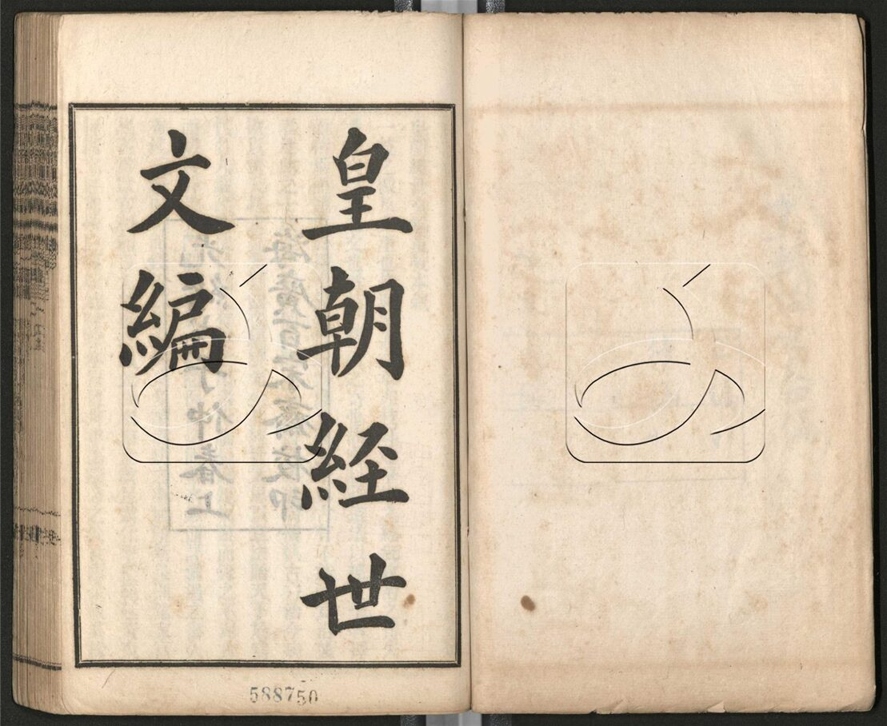 皇朝経世
文編
588750